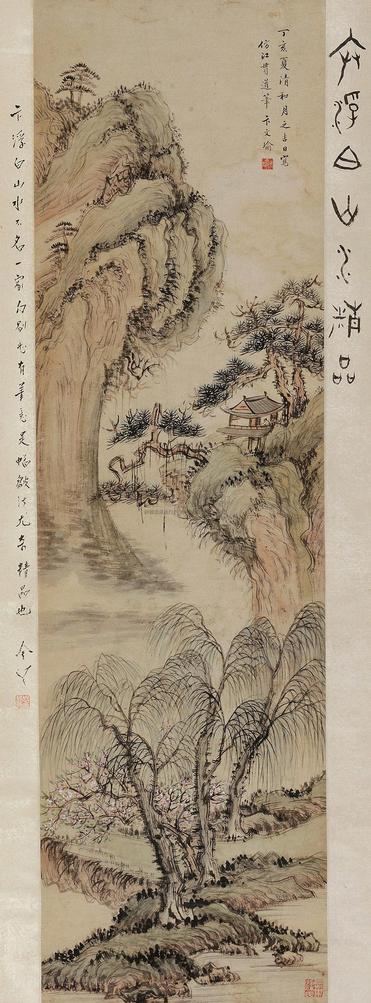 卞浮白山水精品
丁亥夏清和月之吉日寫
仿江貫道筆 卞文瑜
卞浮白山水不名一家有筆意是幅皴法尤奇精品也